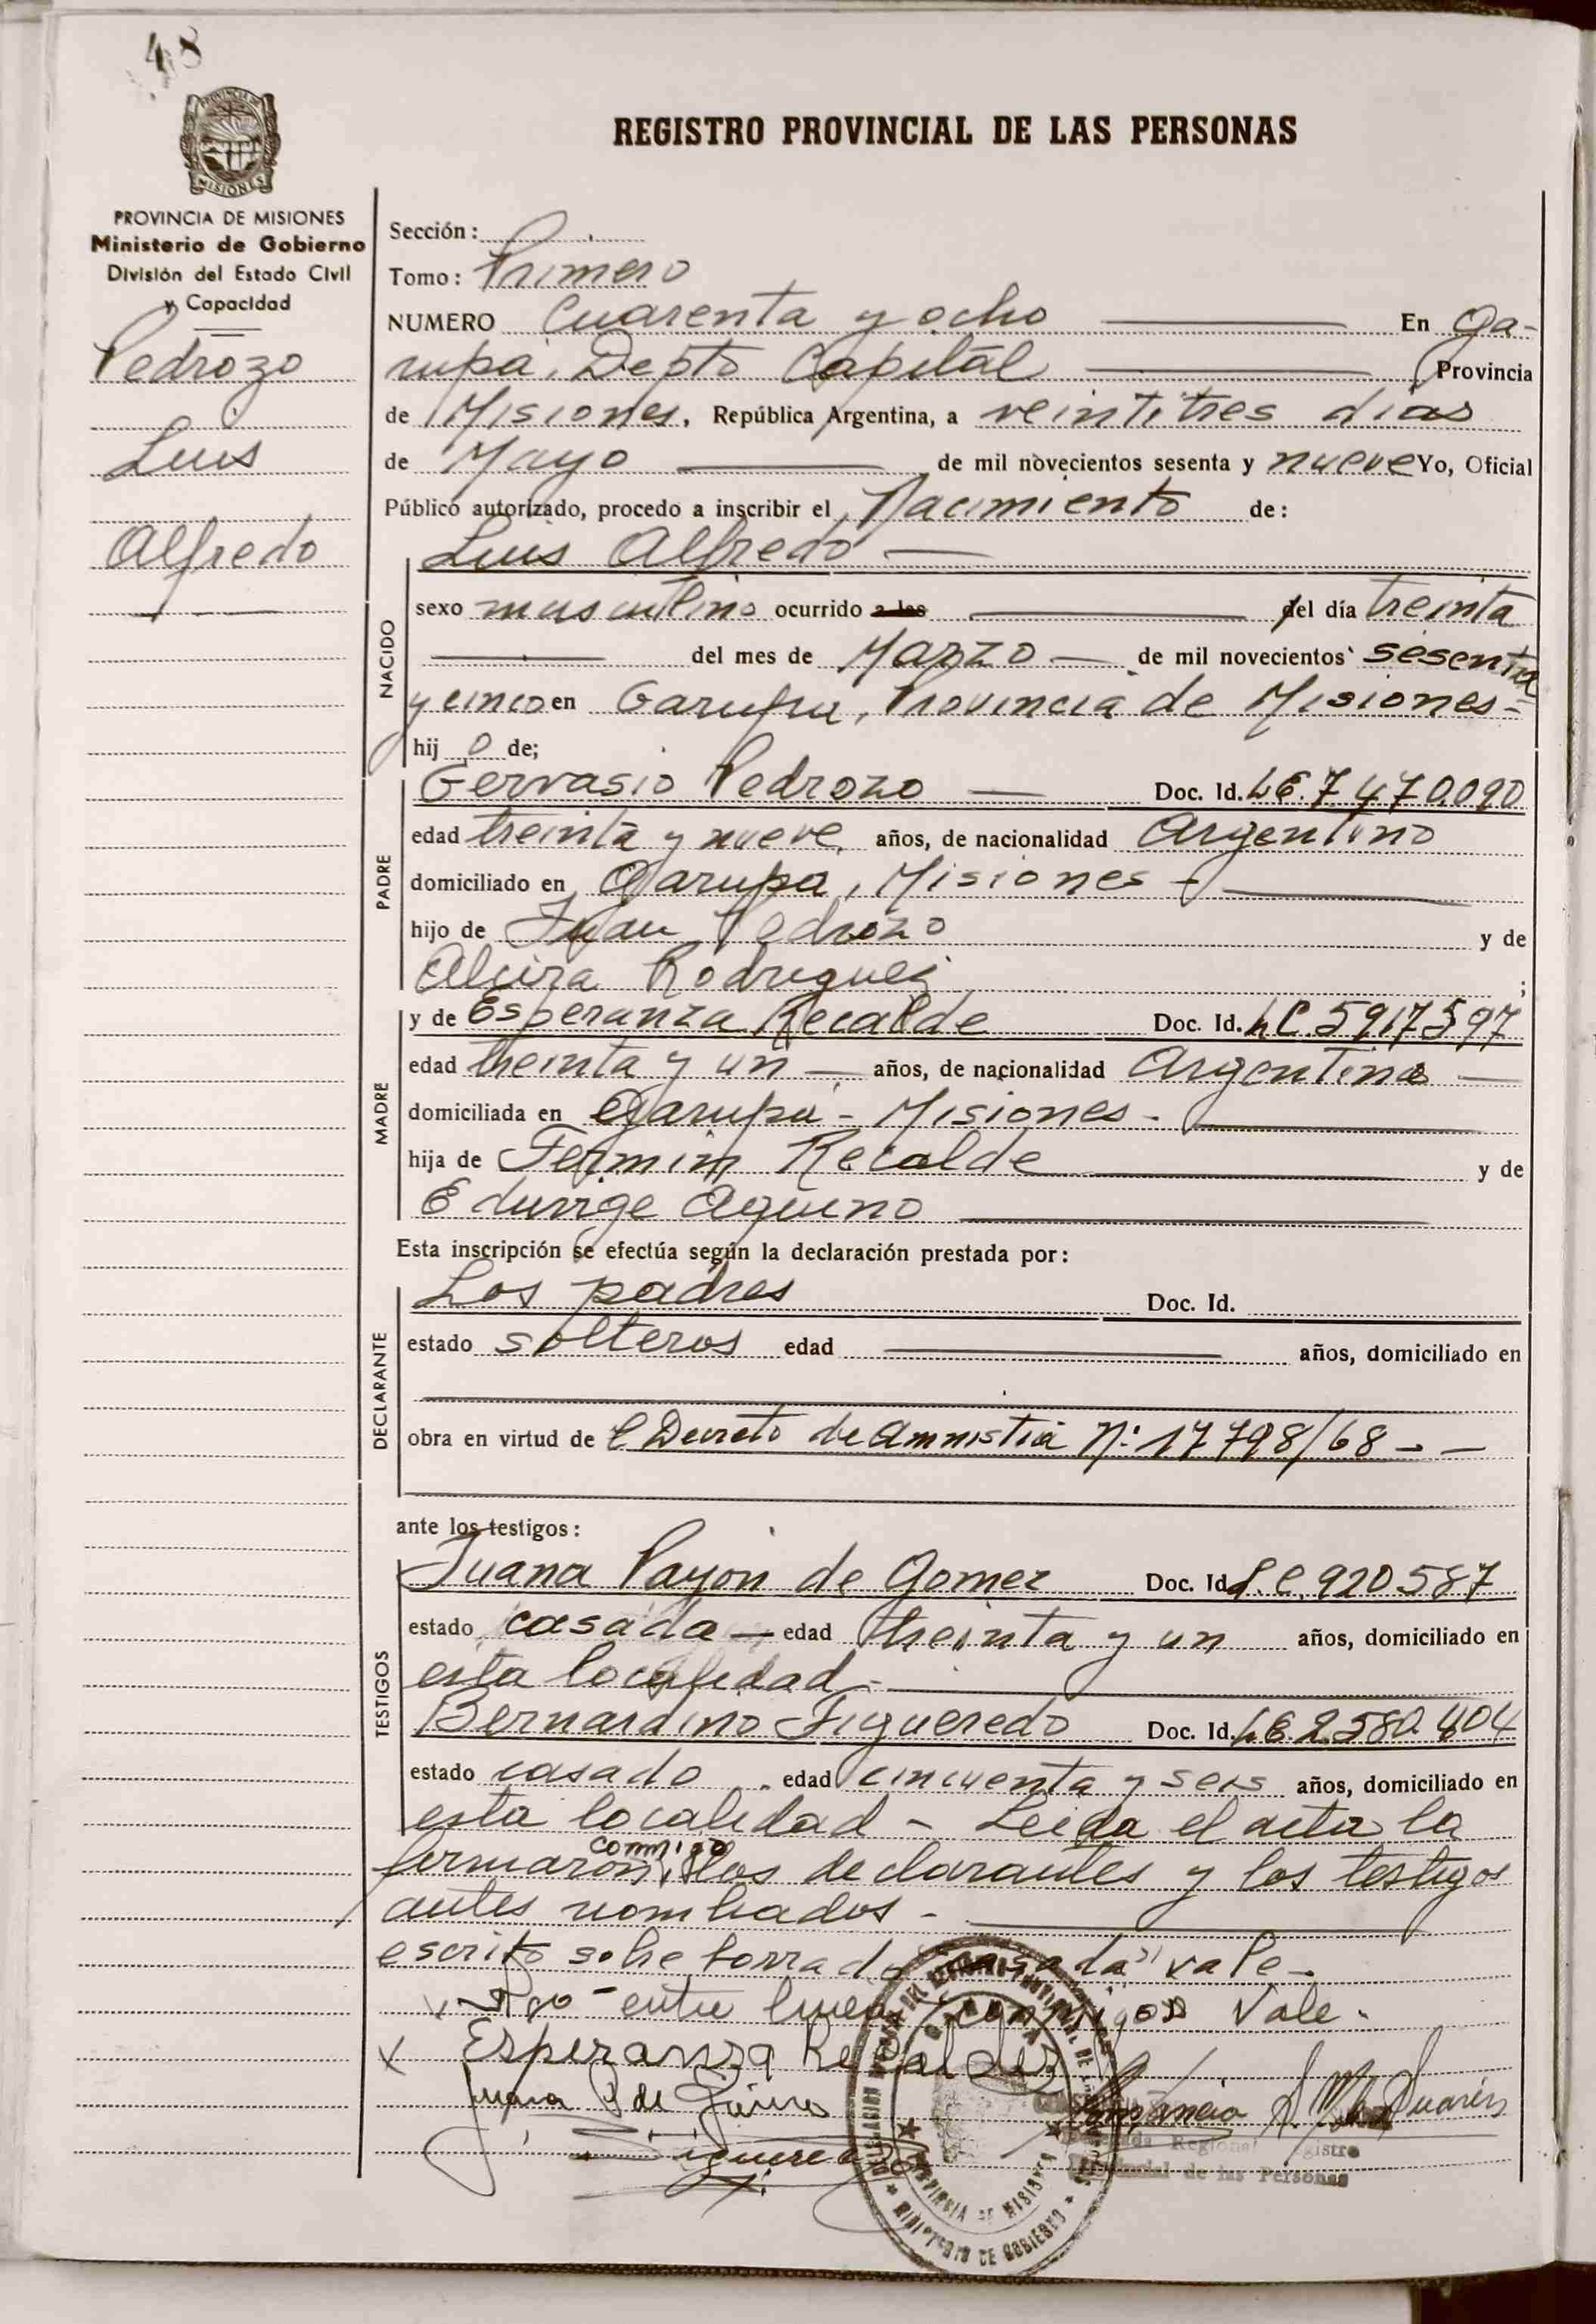 48
REGISTRO PROVINCIAL DE LAS PERSONAS
PROVINCIA DE
MISIONES
PROVINCIA DE MISIONES
Ministerio de Gobierno
División del Estado Civil
y Capacidad
Pedrozo
Luis
Alfredo
Sección:
Tomo: Primero
NUMERO Cuarenta y ocho En Ga-
rupa, Depto Capital Provincia
de Misiones, República Argentina, a veintitres dias
de Mayo de mil novecientos sesenta y nueve Yo, Oficial
Público autorizado, procedo a inscribir el Nacimiento de:
Luis Alfredo
NACIDO
sexo masculino ocurrido a las del día treinta
del mes de Marzo de mil novecientos sesenta
y cinco en Garupa, Provincia de Misiones-
hij o de;
PADRE
Gervasio Pedrozo Doc. Id. LE.7.470.090
edad treinta y nueve años, de nacionalidad Argentino
domiciliado en Garupa, Misiones -
hijo de Juan Pedrozo y de
Alcira Rodriguez ;
MADRE
y de Esperanza Recalde Doc. Id. LC.5917597
edad treinta y un años, de nacionalidad Argentina
domiciliada en Garupa - Misiones -
hija de Fermin Recalde y de
Eduvige Aquino
Esta inscripción se efectúa según la declaración prestada por:
DECLARANTE
Los padres Doc. Id.
estado solteros edad años, domiciliado en
obra en virtud de l Decreto de Amnistia N: 17798/68 - -
ante los testigos:
TESTIGOS
Juana Payon de Gomez Doc. Id. L.C.920587
estado casada edad treinta y un años, domiciliado en
esta localidad -
Bernardino Figueredo Doc. Id. LE.2.580.404
estado casado edad cincuenta y seis años, domiciliado en
esta localidad - Leida el acta la
conmigo
firmaron, los declarantes y los testigos
antes nombrados -
escrito sobre borrado "casada" vale -
entre lineas "conmigo" Vale -
x Esperanza Recalde
Juana P de
Figueredo
Suarez
Regional Registro
Provincial de las Personas
PROVINCIA DE MISIONES
MINISTERIO DE GOBIERNO